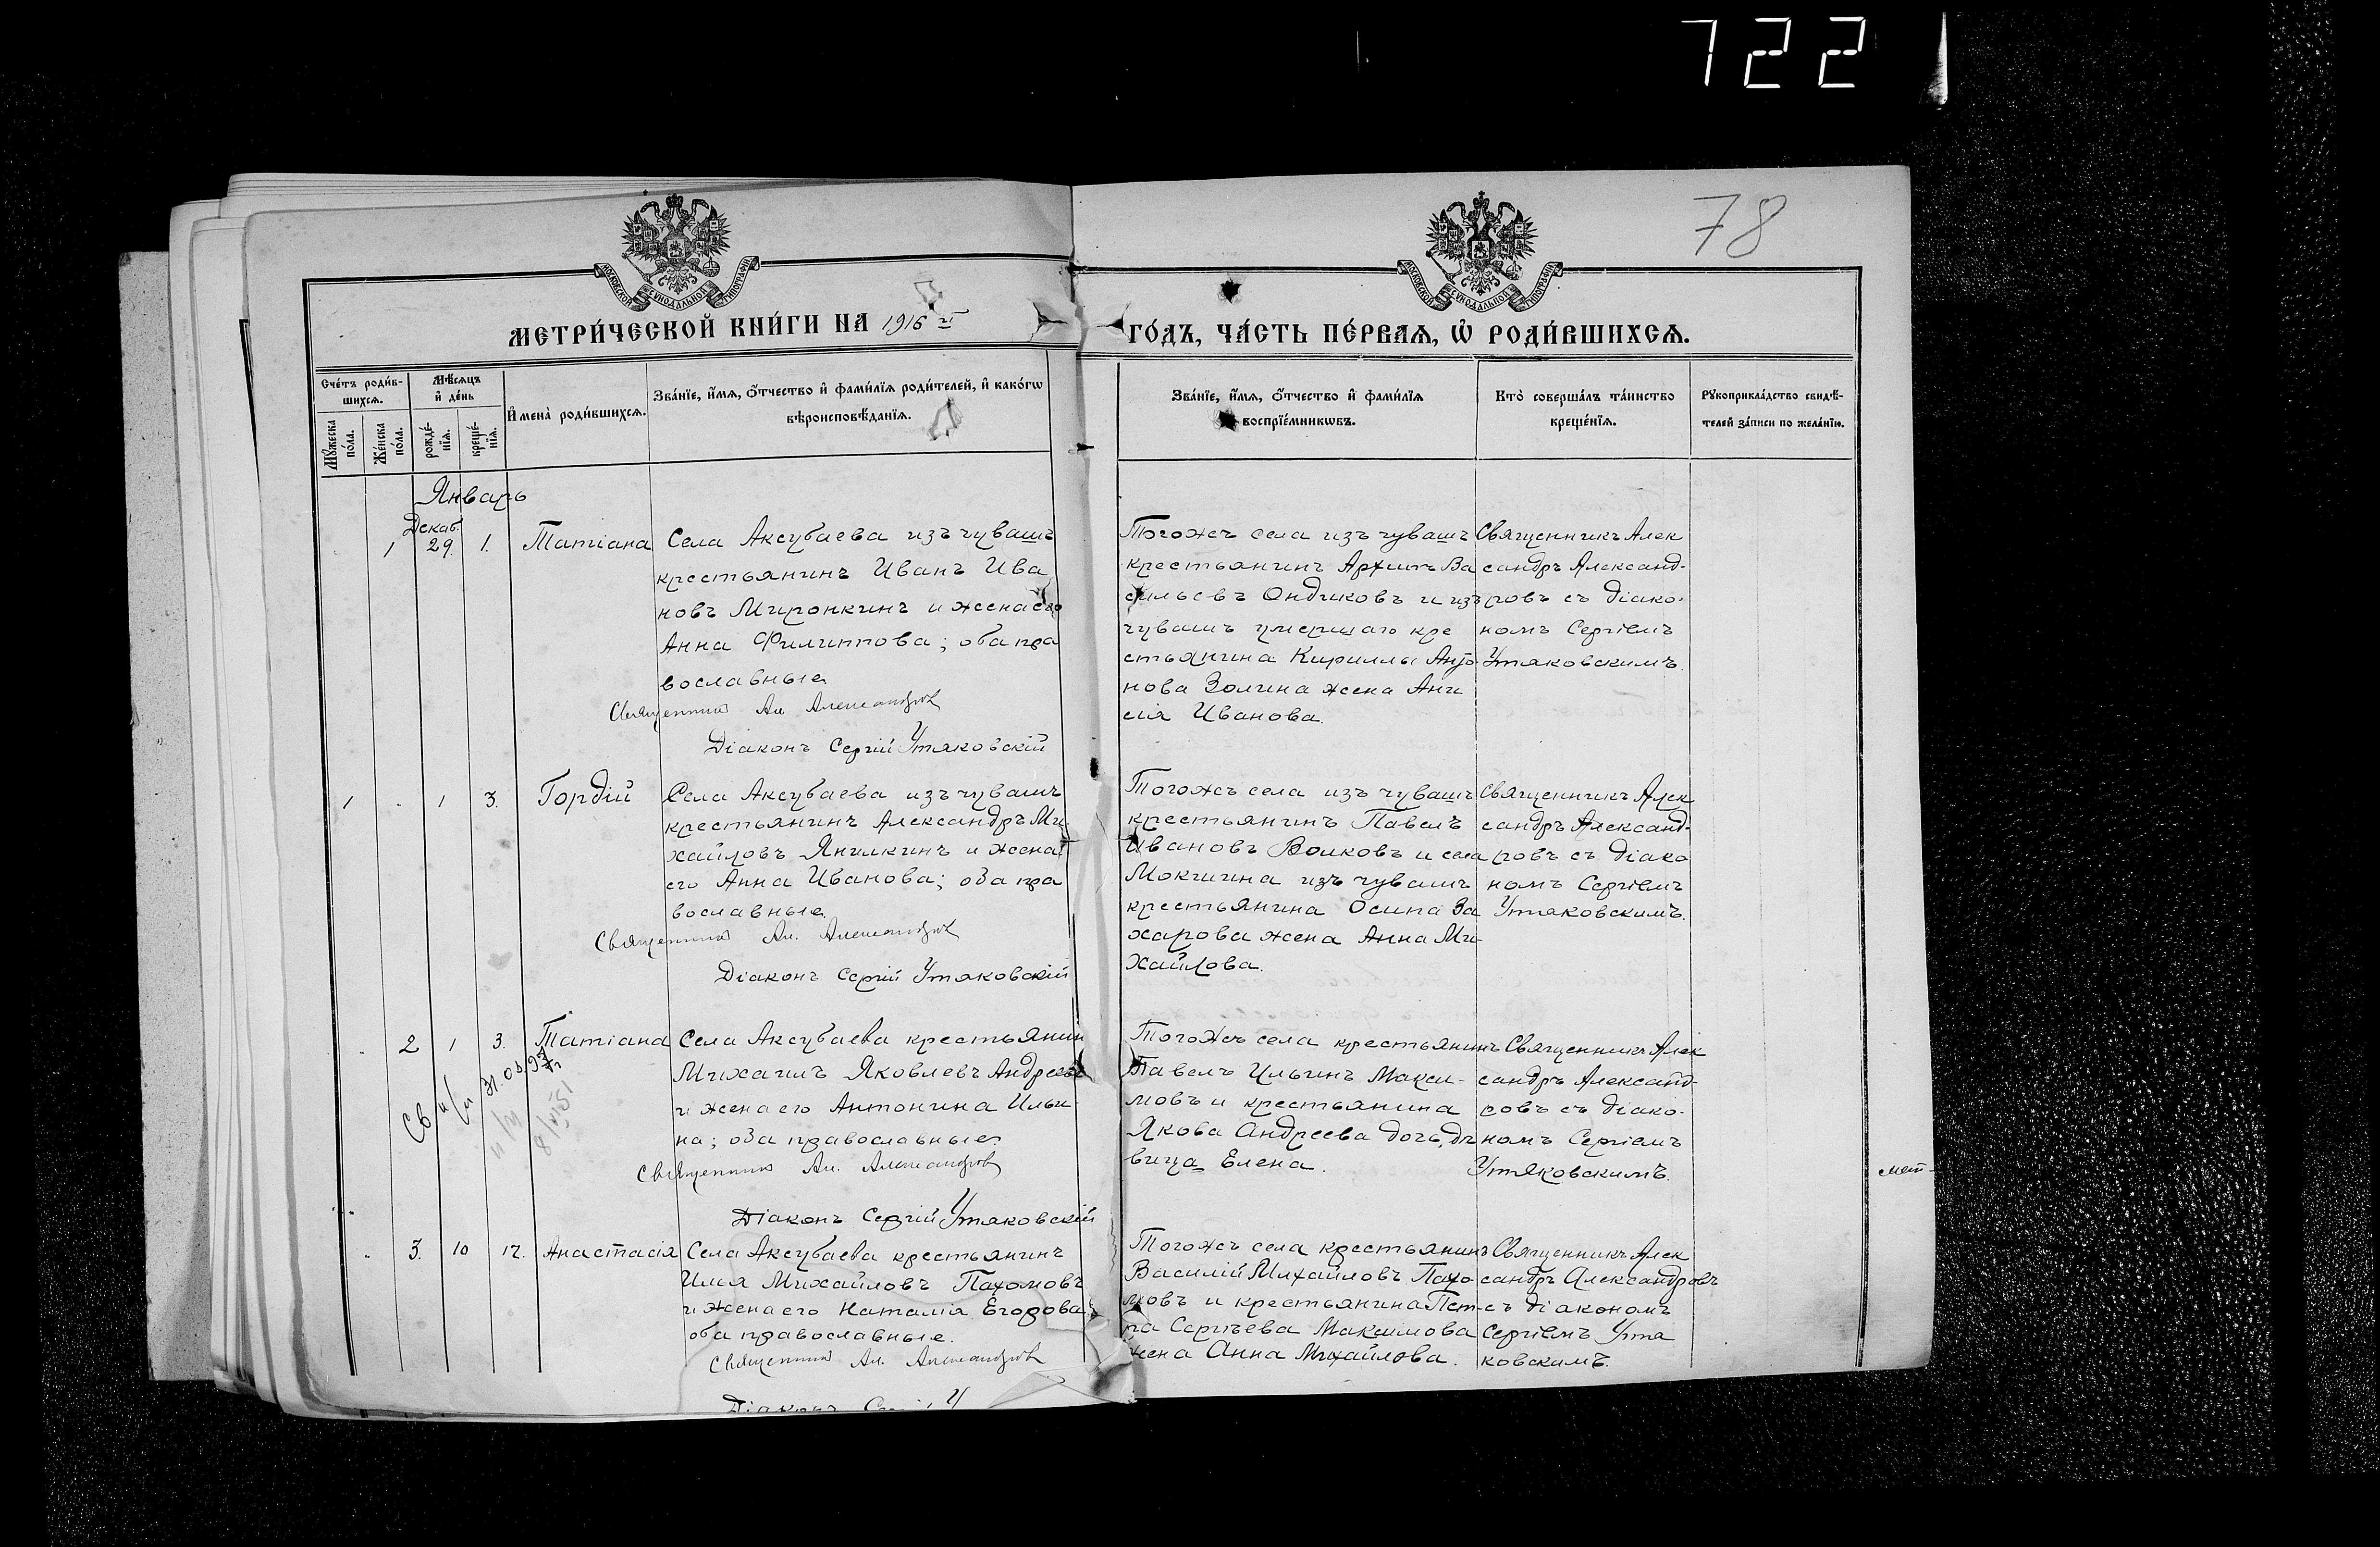 722
78
МОСКОВСКОЙ СѴНОДАЛЬНОЙ ТИПОГРАФІИ
МОСКОВСКОЙ СѴНОДАЛЬНОЙ ТИПОГРАФІИ
МЕТРИ́ЧЕСКОЙ КНИ́ГИ НА 1916 й
ГО́ДЪ, ЧА́СТЬ ПЕ́РВАЯ, Ѡ РОДИ́ВШИХСЯ.
Сче́тъ роди́в-
шихся.
Мѣ́сяцъ
и де́нь
Му́жеска по́ла.
Же́нска по́ла.
рожде́-
нїя.
креще́-
нїя.
Имена̀ роди́вшихся.
Зва́нїе, и́мя, о́тчество и фами́лїя роди́телей, и како́гѡ
вѣроисповѣ́данїя.
Зва́нїе, и́мя, о́тчество и фами́лїя
воспрїе́мникѡвъ.
Кто̀ соверша́лъ та́инство
креще́нїя.
Рукоприкла́дство свидѣ́-
телей за́писи по жела́нїю.
Январь
Декаб.
1 29. 1. Татіана
Села Аксубаева изъ чувашъ
крестьянинъ Иванъ Ива
новъ Миронкинъ и жена его
Анна Филиппова; оба пра
вославные
Священникъ Ал. Александровъ
Діаконъ Сергій Утяковскій
Тогожъ села изъ чувашъ
крестьянинъ Архипъ Ва
сильевъ Ондиковъ и изъ
чувашъ умершаго кре
стьянина Кириллы Анто
нова Золина жена Ани
сія Иванова.
Священникъ Алек
сандръ Александ-
ровъ съ діако-
номъ Сергіемъ
Утяковскимъ.
1 - 1 3. Гордій
Села Аксубаева изъ чувашъ
крестьянинъ Александръ Ми
хайловъ Янилкинъ и жена
его Анна Иванова; оба пра
вославные.
Священникъ Ал. Александровъ
Діаконъ Сергій Утяковскій
Тогожъ села изъ чувашъ
крестьянинъ Павелъ
Ивановъ Волковъ и села
Мокшина изъ чувашъ
крестьянина Осипа За
харова жена Анна Ми-
хайлова.
Священникъ Алек
сандръ Александ-
ровъ съ діако
номъ Сергіемъ
Утяковскимъ.
- 2 1 3. Татіана
Села Аксубаева крестьянин
Михаилъ Яковлевъ Андреевъ
и жена его Антонина Ильи-
на; оба православные.
Священникъ Ал. Александровъ
Діаконъ Сергій Утяковскій
Тогожъ села крестьянинъ
Павелъ Ильинъ Макси-
мовъ и крестьянина
Якова Андреева дочь, дѣ
вица Елена.
Священникъ Алек
сандръ Александ-
ровъ съ діако-
номъ Сергіемъ
Утяковскимъ.
- 3. 10 17. Анастасія
Села Аксубаева крестьянинъ
Илья Михайловъ Пахомовъ
и жена его Наталія Егорова;
оба православные.
Священникъ Ал. Александровъ
Діаконъ
Тогожъ села крестьянинъ
Василій Михайловъ Пахо-
мовъ и крестьянина Пет-
ра Сергѣева Максимова
жена Анна Михайлова.
Священникъ Алек
сандръ Александровъ
съ діакономъ
Сергіемъ Утя
ковскимъ.